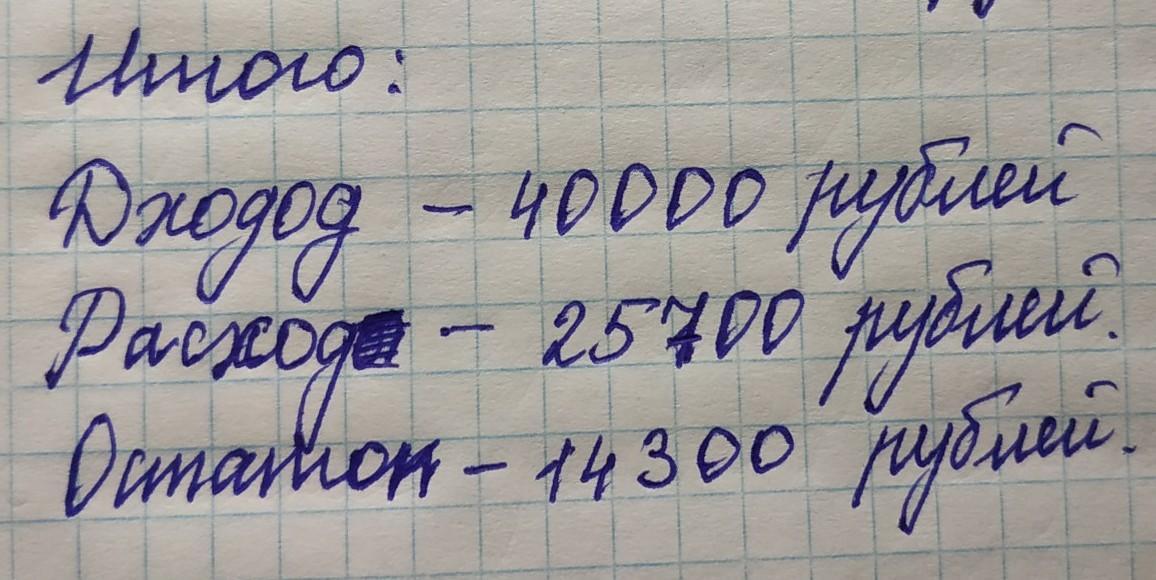 Итого:
Дходод - 40000 рублей
Расход - 25700 рублей.
Остаток - 14300 рублей.